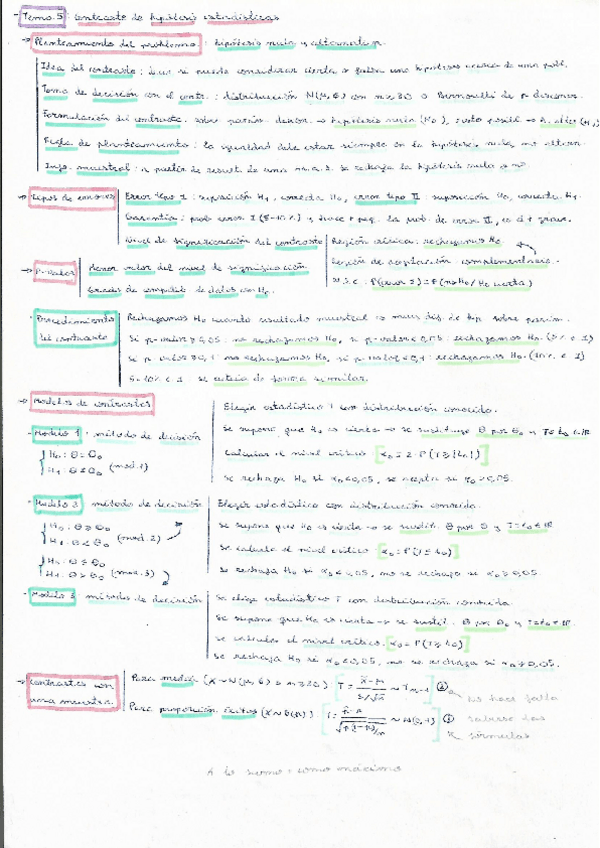 - Tema 5: contraste de hipótesis estadísticas
→ Planteamiento del problema: hipótesis nula y alternativa.
Idea del contraste: decir si puede considerar cierta o falsa una hipótesis acerca de una pobl.
Toma de decisión con el contr.: distribución N(μ, σ) con n ≥ 30 o Bernouilli de p descon.
Formulación del contraste: sobre parám. descon. → hipótesis nula (H₀), resto posibl → h. alter (H₁)
Regla de planteamiento: la igualdad debe estar siempre en la hipótesis nula, no altern.
Info. muestral: a partir de result. de una m.a.s. se rechaza la hipótesis nula o no.
→ Tipos de errores
Error tipo I: suposición H₁, correcta H₀, error tipo II: suposición H₀, correcta H₁.
Garantía: prob error I (5-10%) y hace + peq. la prob. de error II, es el + grave.
Nivel de significación del contraste
Región crítica: rechazamos H₀
Región de aceptación: complementaria.
→ P-valor
Menor valor del nivel de significación
Grado de compatib. de datos con H₀.
- Procedimiento del contraste
Rechazamos H₀ cuanto resultado muestral es muy dif. de hip. sobre parám.
Si p-valor > 0,05: no rechazamos H₀, si p-valor < 0,05: rechazamos H₀. (5% e I)
Si p-valor > 0,1: no rechazamos H₀, si p-valor < 0,1: rechazamos H₀. (10% e I)
5-10% e I se enteia de forma similar.
→ Modelos de contrastes
- Modelo 1: método de decisión
H₀: θ = θ₀
H₁: θ ≠ θ₀ (mod. 1)
Elegir estadístico T con distribución conocida.
Se supone que H₀ es cierta → se sustituye θ por θ₀ y T = t₀ ∈ ℝ
Calcular el nivel crítico [α₀ = 2·P(T ≥ |t₀|)]
Se rechaza H₀ si α₀ < 0,05, se acepta si α₀ > 0,05.
- Modelo 2: método de decisión
H₀: θ ≥ θ₀
H₁: θ < θ₀ (mod. 2)
H₀: θ ≤ θ₀
H₁: θ > θ₀ (mod. 3)
Elegir estadístico con distribución conocida.
Se supone que H₀ es cierta → se sustit. θ por θ₀ y T = t₀ ∈ ℝ
Se calcula el nivel crítico: [α₀ = P(T ≤ t₀)]
Se rechaza H₀ si α₀ < 0,05, no se rechaza si α₀ > 0,05.
- Modelo 3: método de decisión
Se elige estadístico T con distribución conocida.
Se supone que H₀ es cierta → se sustit. θ por θ₀ y T = t₀ ∈ ℝ.
Se calcula el nivel crítico: [α₀ = P(T ≥ t₀)]
Se rechaza H₀ si α₀ < 0,05, no se rechaza si α₀ > 0,05.
→ Contrastes con una muestra
Para media (X ~ N(μ, σ) o n ≥ 30)
Para proporción éxitos (X ~ B(p))
No hace falta
saberse las
fórmulas
A lo sumo: como máximo